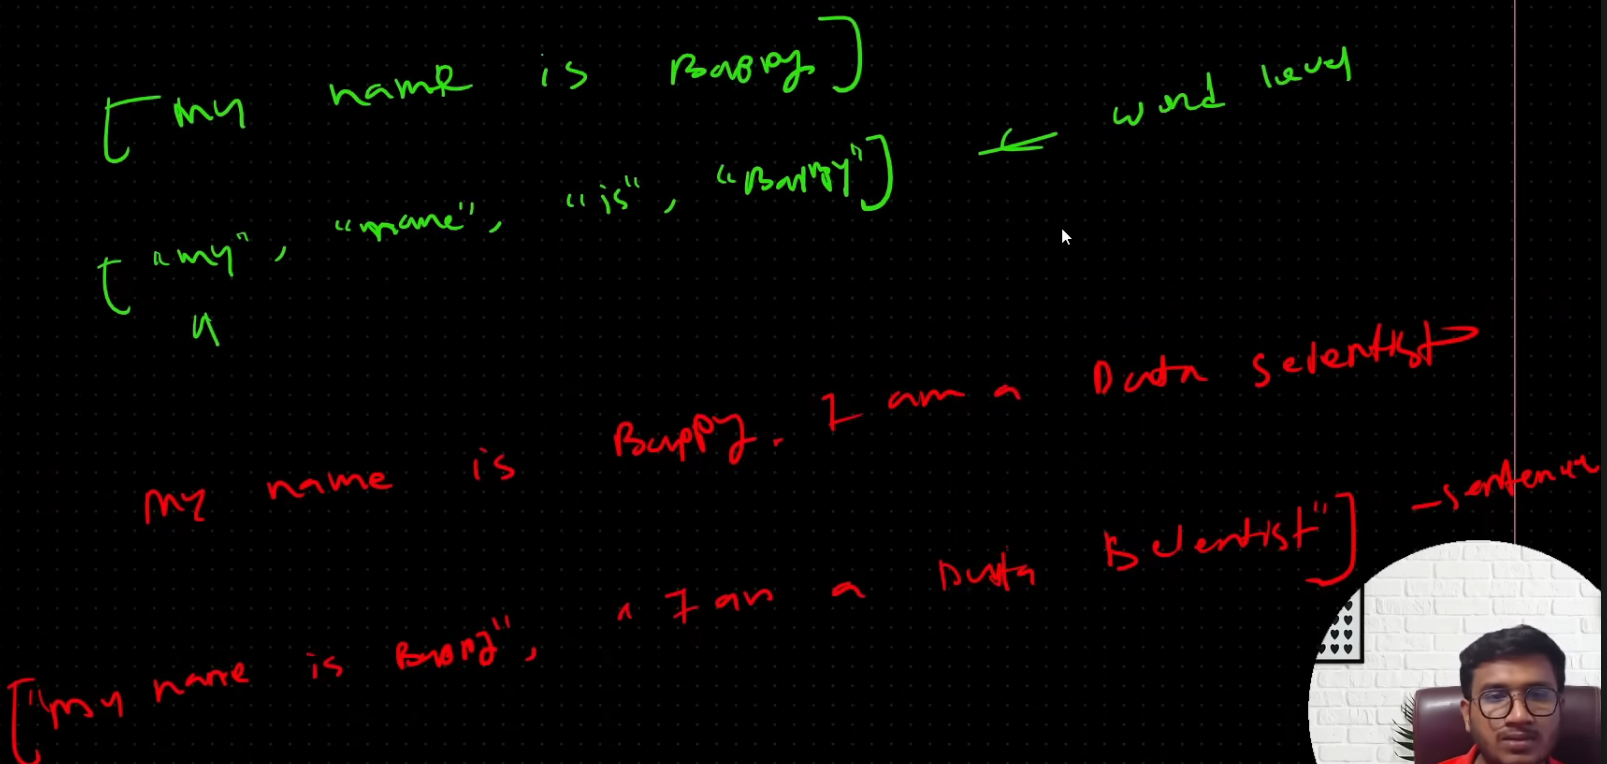 [my name is Bappy]
["my", "name", "is", "Bappy"] ← word level
My name is Bappy. I am a Data Scientist
["My name is Bappy", "I am a Data Scientist"] - sentence